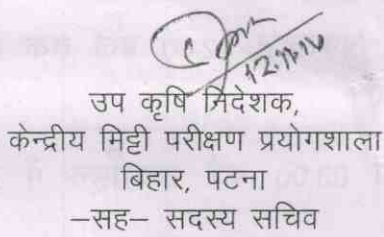 12.11.14
उप कृषि निदेशक,
केन्द्रीय मिट्टी परीक्षण प्रयोगशाला
बिहार, पटना
–सह– सदस्य सचिव